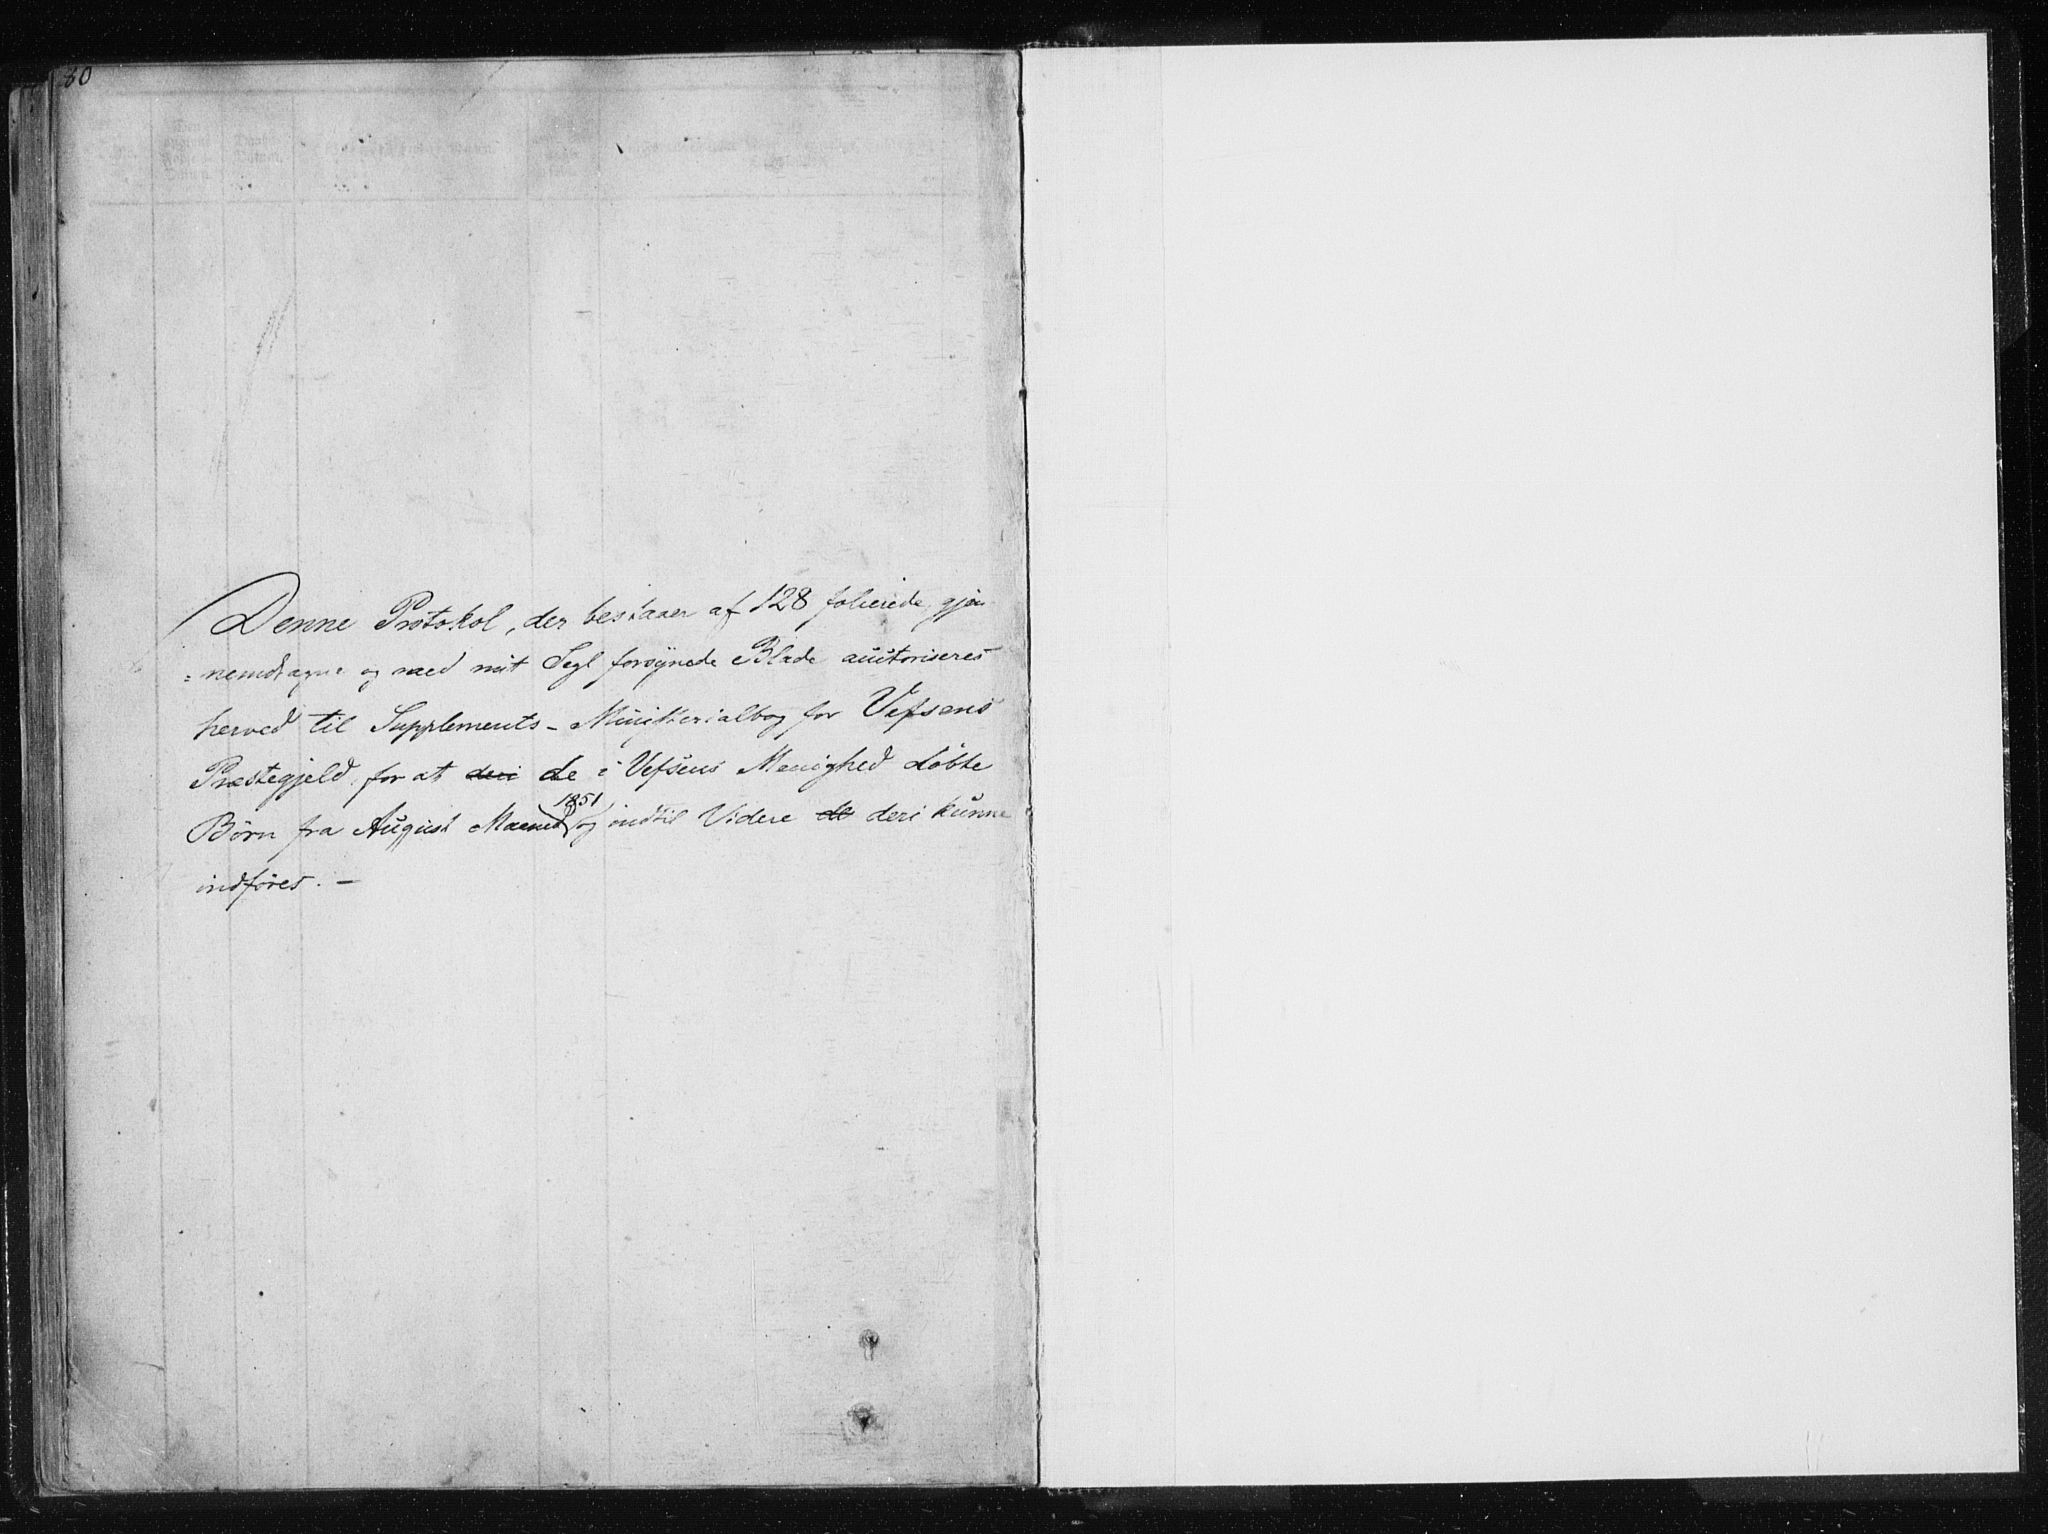 80
Denne Protokol, der bestaaer af 128 folierede, gjen
=nemdragne og med mit Segl forsynede Blade autoriseres
herved til Supplements-Ministerialbog for Vefsens
Præstegjeld for at deri de i Vefsens Menighed døbte
Børn fra August Maaned 1851 og indtil Videre de deri kunne
indføres. —